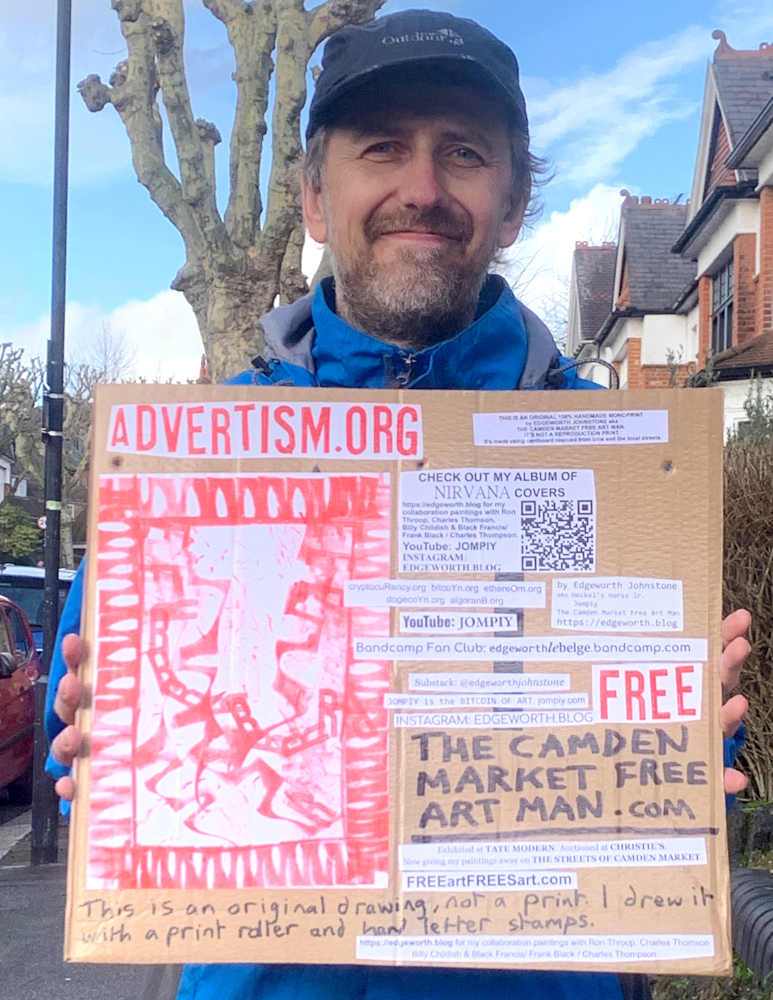 Outdoor
ADVERTISM.ORG
THIS IS AN ORIGINAL 100% HANDMADE MONO-PRINT
by EDGEWORTH JOHNSTONE aka
THE CAMDEN MARKET FREE ART MAN.
IT'S NOT A REPRODUCTION PRINT.
It's made using cardboard rescued from bins and the local streets.
CHECK OUT MY ALBUM OF
NIRVANA COVERS
https://edgeworth.blog for my
collaboration paintings with Ron
Throop, Charles Thomson,
Billy Childish & Black Francis/
Frank Black / Charles Thompson.
YouTube: JOMPIY
INSTAGRAM:
EDGEWORTH.BLOG
cryptocuRency.org bitcoYn.org ethereOm.org
dogecoYn.org algoranB.org
by Edgeworth Johnstone
aka Heckel's Horse Jr.
Jompiy
The Camden Market Free Art Man
https://edgeworth.blog
YouTube: JOMPIY
Bandcamp Fan Club: edgeworthlebelge.bandcamp.com
Substack: @edgeworthjohnstone
JOMPIY is the BITCOIN OF ART: jompiy.com
INSTAGRAM: EDGEWORTH.BLOG
FREE
THE CAMDEN
MARKET FREE
ART MAN.COM
Exhibited at TATE MODERN. Auctioned at CHRISTIE'S.
Now giving my paintings away on THE STREETS OF CAMDEN MARKET
FREEartFREESart.com
This is an original drawing, not a print. I drew it
with a print roller and hand letter stamps.
https://edgeworth.blog for my collaboration paintings with Ron Throop, Charles Thomson
Billy Childish & Black Francis/ Frank Black / Charles Thompson.